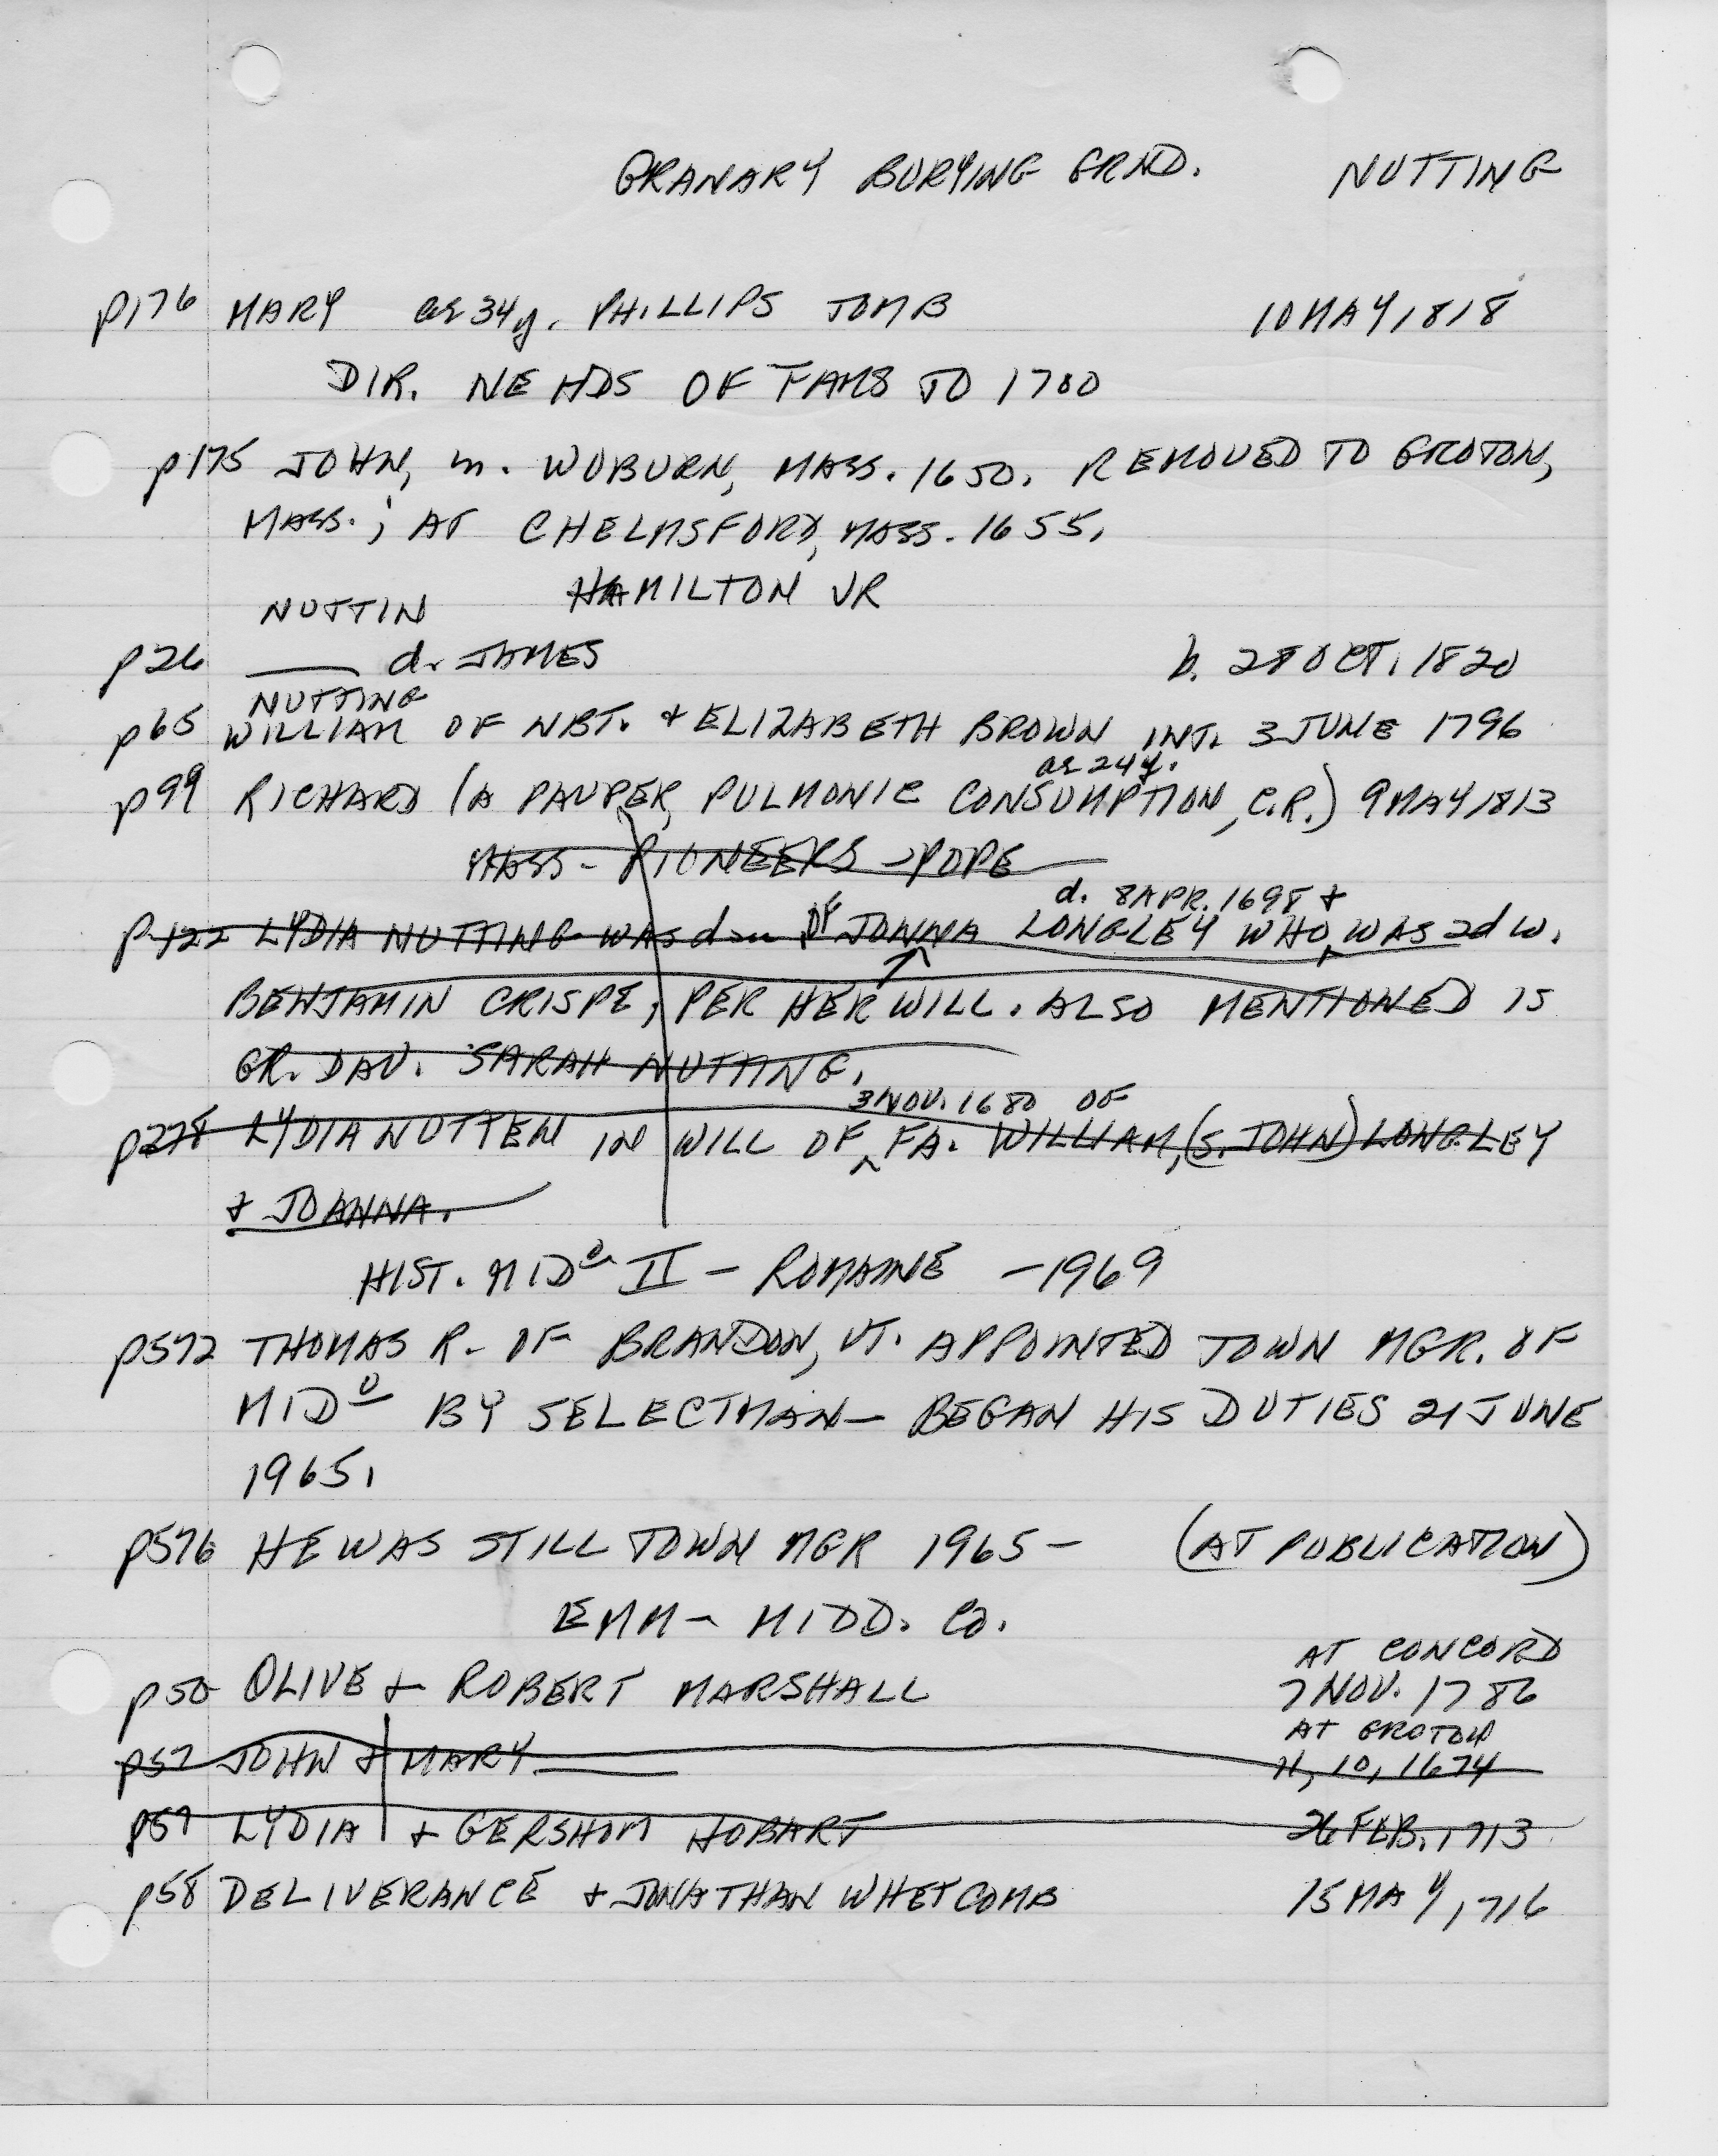 GRANARY BURYING GRND. NUTTING
p176 MARY ae 34y. PHILLIPS TOMB 10 MAY 1818
DIR. NE HDS OF FAMS TO 1700
p175 JOHN, m. WOBURN, MASS. 1650. REMOVED TO GROTON,
MASS.; AT CHELMSFORD, MASS. 1655.
HAMILTON VR
NUTTIN
p26 — d. JAMES b. 28 OCT. 1820
NUTTING
p65 WILLIAM OF NBT. + ELIZABETH BROWN INT. 3 JUNE 1796
ae 24y.
p99 RICHARD (A PAUPER, PULMONIC CONSUMPTION, C.R.) 9 MAY 1813
MASS - PIONEERS - POPE
d. 8 APR. 1698 +
p122 LYDIA NUTTING WAS dau OF JONNA LONGLEY WHO WAS 2d w.
BENJAMIN CRISPE, PER HER WILL. ALSO MENTIONED IS
GR. DAU. SARAH NUTTING.
3 NOV. 1680 OF
p278 LYDIA NUTTEN IN WILL OF FA. WILLIAM, (S. JOHN) LONGLEY
+ JOANNA.
HIST. MIDº II - ROMAINE - 1969
p572 THOMAS R. OF BRANDON, VT. APPOINTED TOWN MGR. OF
MIDº BY SELECTMAN - BEGAN HIS DUTIES 21 JUNE
1965.
p576 HE WAS STILL TOWN MGR 1965 - (AT PUBLICATION)
EMM - MIDD. Co.
AT CONCORD
p50 OLIVE + ROBERT MARSHALL 7 NOV. 1786
AT GROTON
p57 JOHN + MARY — 11, 10, 1674
p57 LYDIA + GERSHOM HOBART 26 FEB. 1713
p58 DELIVERANCE + JONATHAN WHETCOMB 15 MAY 1716